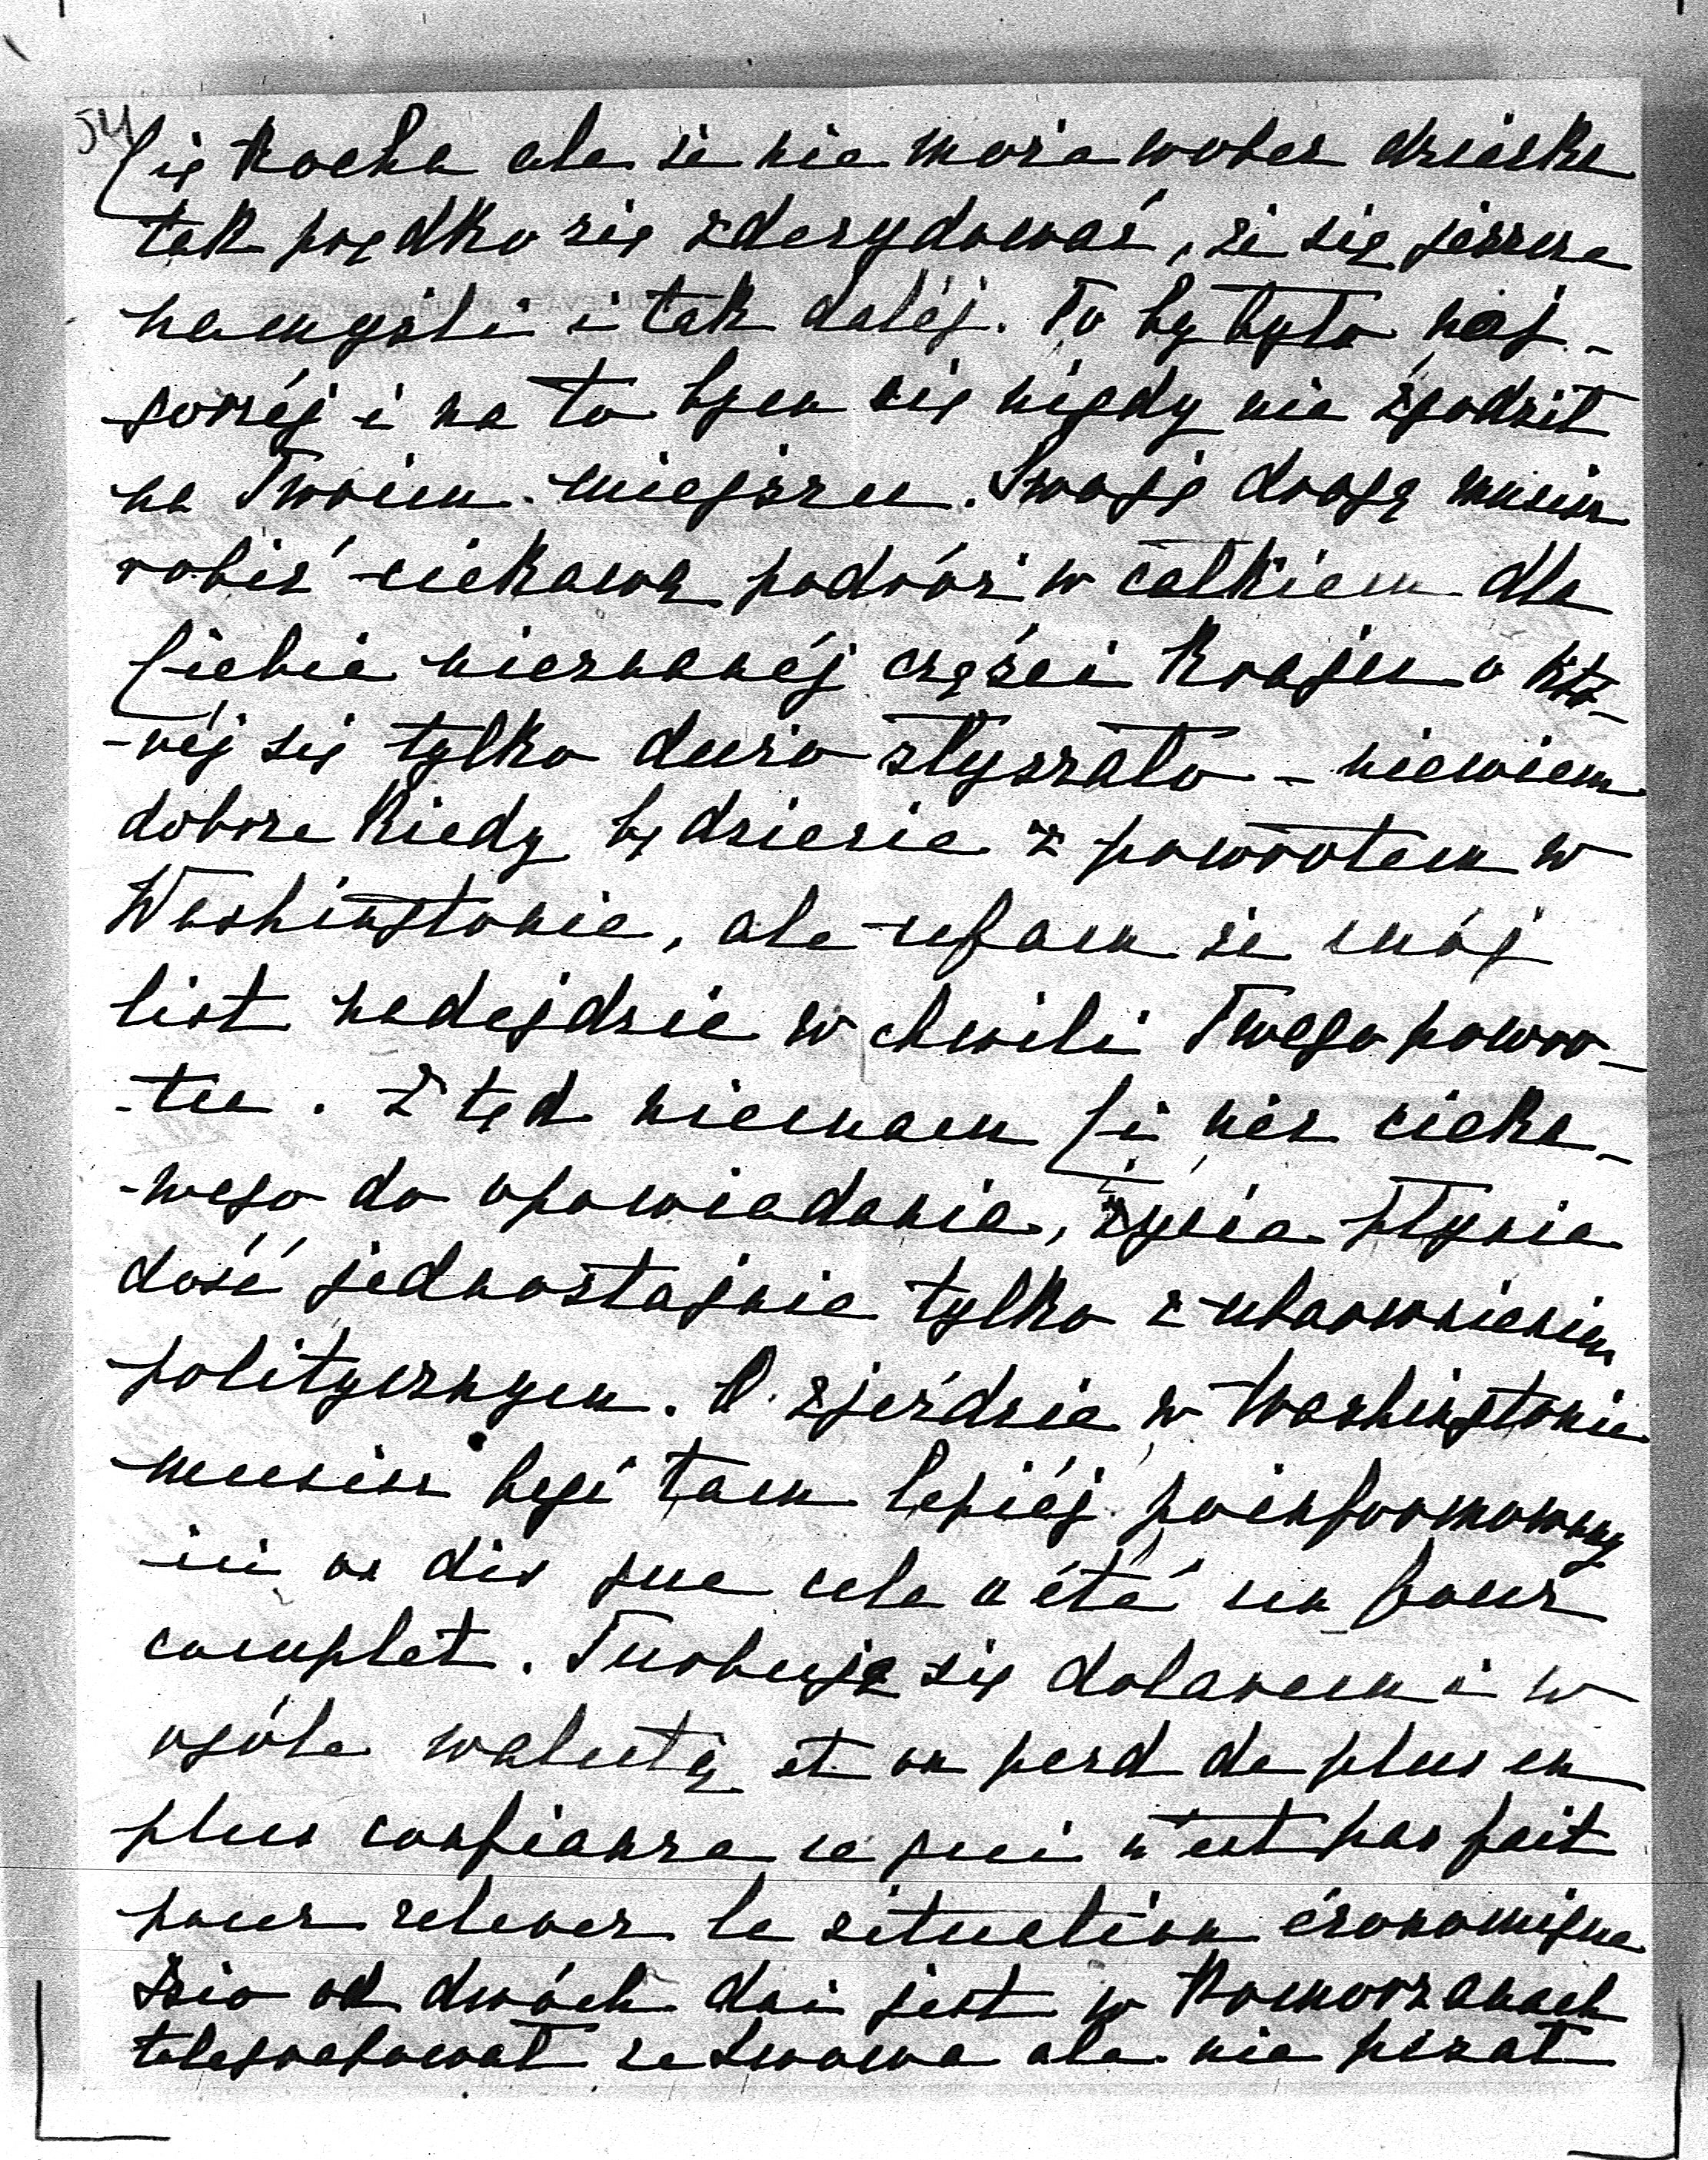 54
Cię kocha ale że nie może wobec dziecka
tak prędko się zdecydować, że się jeszcze
namyśli i tak daléj. To by było naj-
gorzéj i na to bym się nigdy nie zgodził
na Twoim miejscu. Swoją drogą musisz
robić ciekawą podróż w całkiem dla
Ciebie nieznanéj części kraju o któ-
-réj się tylko dużo słyszało - niewiem
dobrze kiedy będziecie z powrotem w
Washingtonie, ale ufam że mój
list nadejdzie w chwili Twego powro-
-tu. Z tąd niemam Ci nic cieka-
-wego do opowiadania, życie płynie
dość jednostajnie tylko z ubarwieniem
politycznym. O zjeździe w Washingtonie
musisz być tam lepiéj poinformowany
ici on dis que cela a été un four
complet. Turbują się dolarem i w
ogóle walutą et on perd de plus en
plus confiance ce qui n'est pas fait
pour relever la situation économique
Józio od dwóch dni jest w Pomorzanach
telegrafował ze Lwowa ale nie pisał